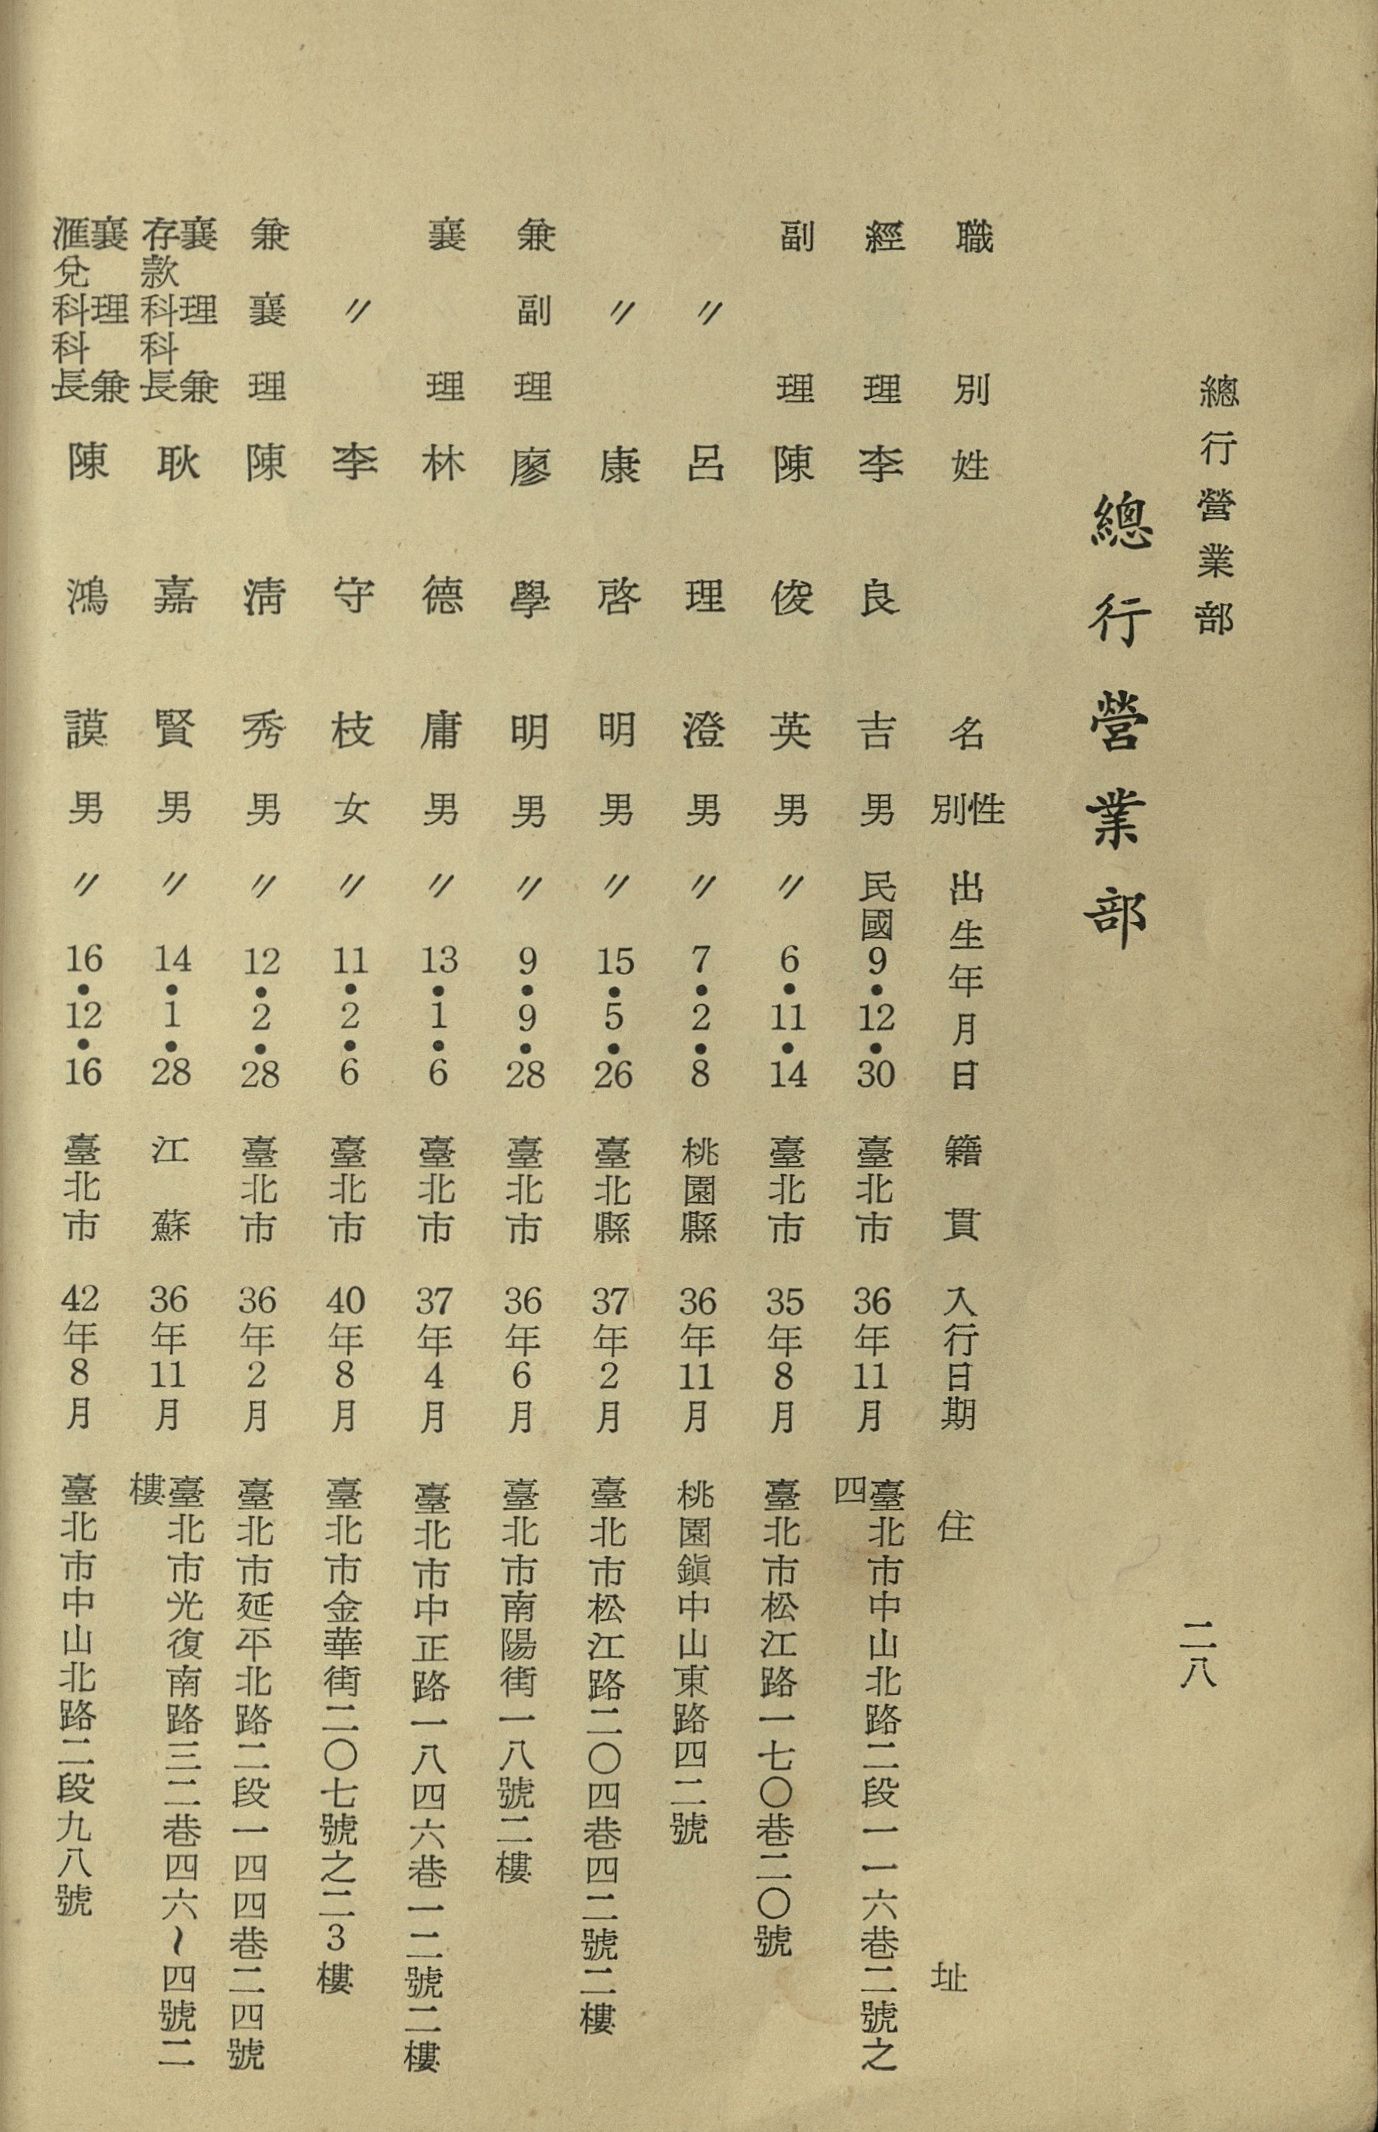 總行營業部
二八
總行營業部
職別 姓名 性別 出生年月日 籍貫 入行日期 住址
經理 李良吉 男 民國9•12•30 臺北市 36年11月 臺北市中山北路二段一一六巷二號之四
副理 陳俊英 男 〃6•11•14 臺北市 35年8月 臺北市松江路一七〇巷二〇號
〃 呂理澄 男 〃7•2•8 桃園縣 36年11月 桃園鎭中山東路四二號
〃 康啓明 男 〃15•5•26 臺北縣 37年2月 臺北市松江路二〇四巷四二號二樓
兼副理 廖學明 男 〃9•9•28 臺北市 36年6月 臺北市南陽街一八號二樓
襄理 林德庸 男 〃13•1•6 臺北市 37年4月 臺北市中正路一八四六巷一二號二樓
〃 李守枝 女 〃11•2•6 臺北市 40年8月 臺北市金華街二〇七號之二3樓
兼襄理 陳清秀 男 〃12•2•28 臺北市 36年2月 臺北市延平北路二段一四四巷二四號
襄理兼存款科科長 耿嘉賢 男 〃14•1•28 江蘇 36年11月 臺北市光復南路三二巷四六~四號二樓
襄理兼滙兌科科長 陳鴻謨 男 〃16•12•16 臺北市 42年8月 臺北市中山北路二段九八號